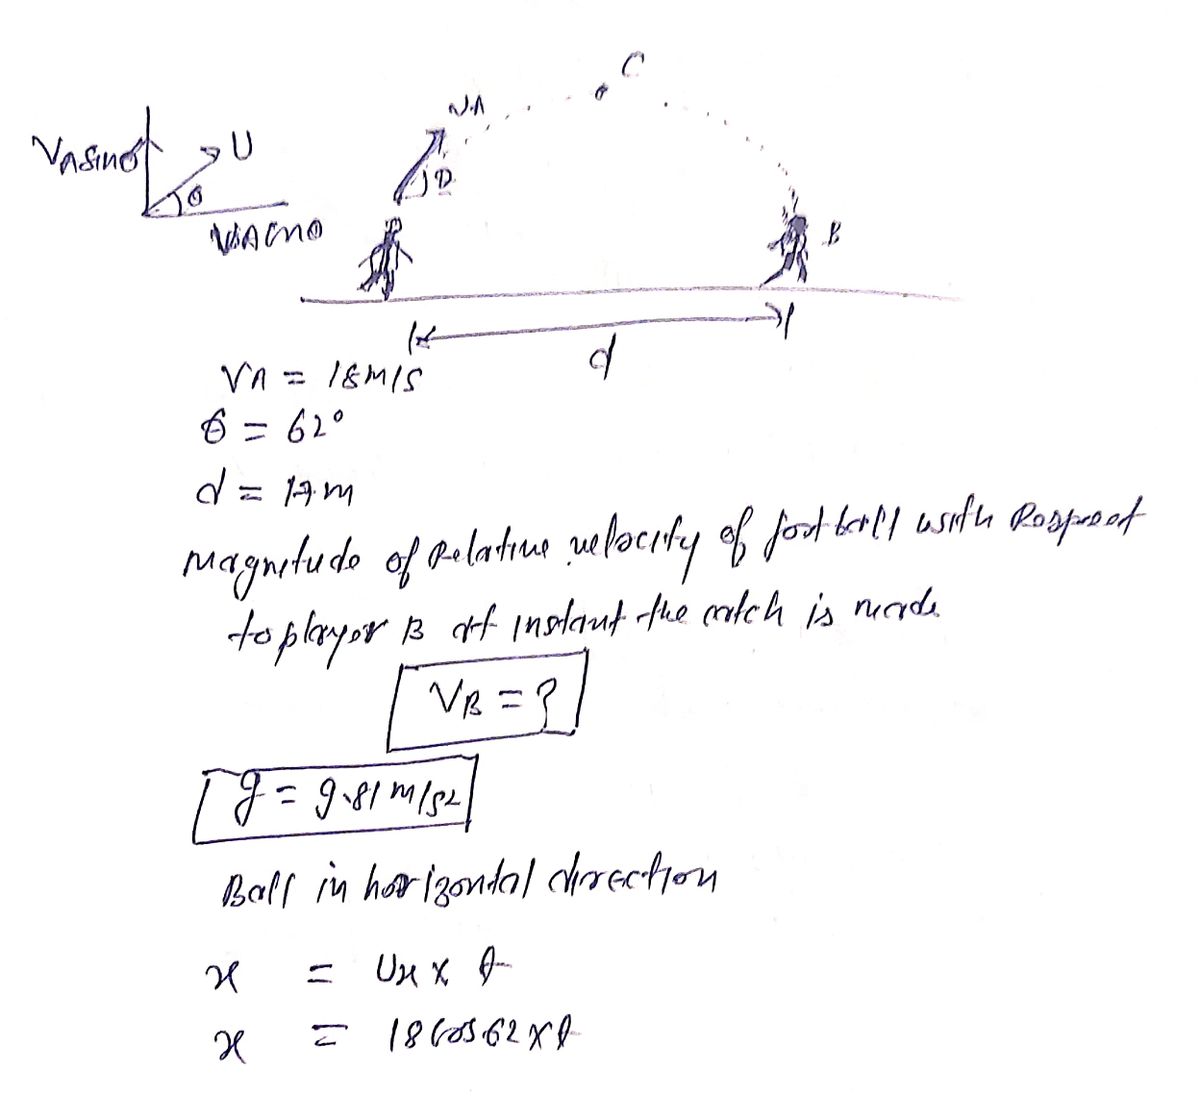 C
VA
VA sinθ
U
θ
VA cosθ
θ
B
d
VA = 18 m/s
θ = 62°
d = 17 m
Magnitude of Relative velocity of football with Respect
to player B at instant the catch is made
VB = ?
g = 9.81 m/s2
Ball in horizontal direction
x = Ux x t
x = 18 cos 62 x t